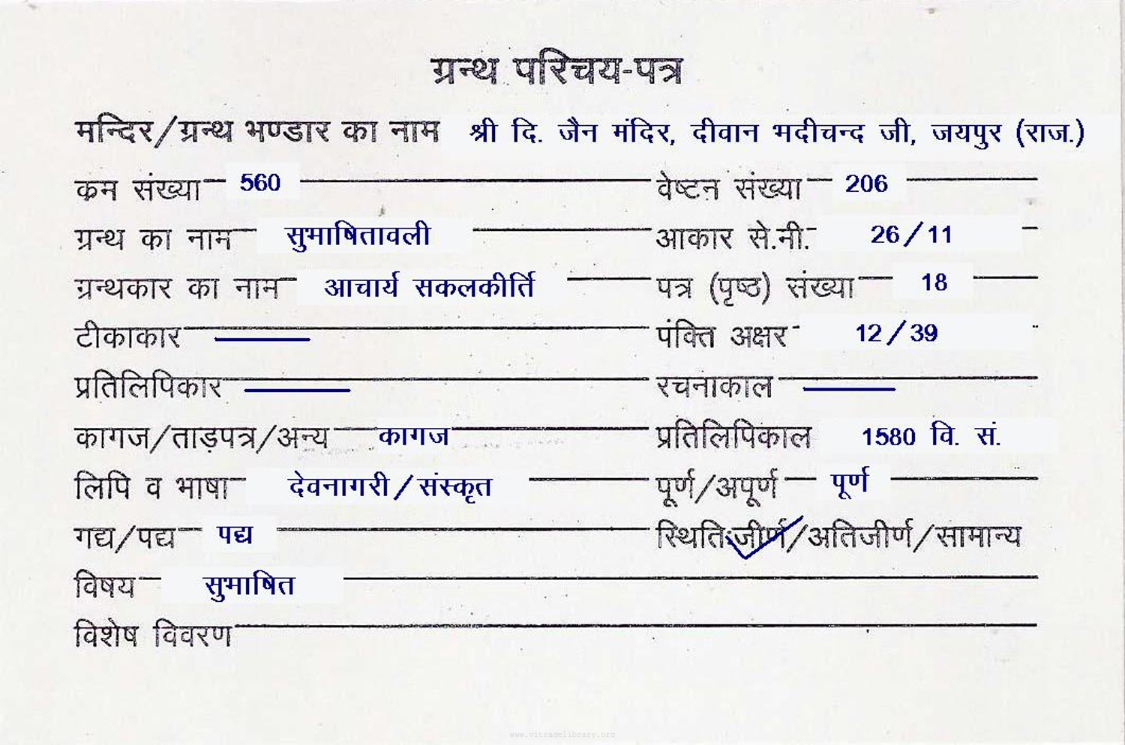 ग्रन्थ परिचय-पत्र
मन्दिर/ग्रन्थ भण्डार का नाम श्री दि. जैन मंदिर, दीवान भदीचन्द जी, जयपुर (राज.)
क्रम संख्या 560 वेष्टन संख्या 206
ग्रन्थ का नाम सुभाषितावली आकार से.मी. 26/11
ग्रन्थकार का नाम आचार्य सकलकीर्ति पत्र (पृष्ठ) संख्या 18
टीकाकार पंक्ति अक्षर 12/39
प्रतिलिपिकार रचनाकाल
कागज/ताड़पत्र/अन्य कागज प्रतिलिपिकाल 1580 वि. सं.
लिपि व भाषा देवनागरी/संस्कृत पूर्ण/अपूर्ण पूर्ण
गद्य/पद्य पद्य स्थिति जीर्ण/अतिजीर्ण/सामान्य
विषय सुभाषित
विशेष विवरण